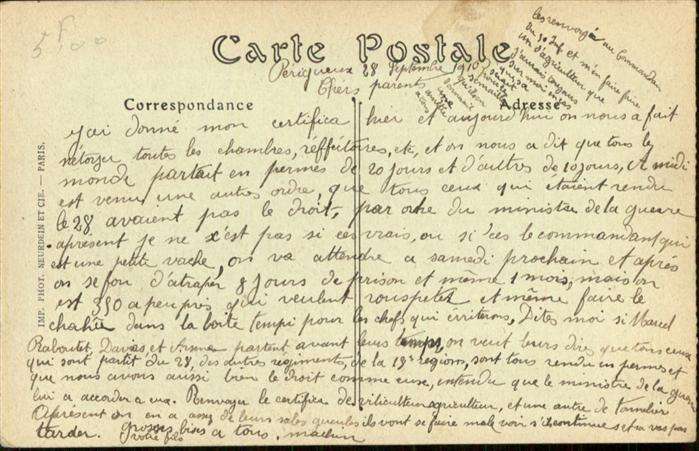 5F00
Carte Postale
Périgueux 28 Septembre 1910
Chers parents
Correspondance
Adresse
j'ai donné mon certifica hier et aujourd'hui on nous a fait
nétoyer toutes les chambres, réfféctoires, etc, et on nous a dit que tous le
monde partait en permes de 20 jours et d'autres de 10 jours, A midi
est venu une autres ordre, que tous ceux qui étaient rendu
le 28 avaient pas le droit, par ordre du ministre de la guerre
apresent je ne s'est pas si ces vrais, ou si s'es le commandant qui
est une petite vache, on va attendre a samedi prochain et après
on se fou d'atraper 8 jours de prison et même 1 mois, mais on
est 350 a peu près qui veulent rouspeter et même faire le
chahu dans la boite tempi pour les chefs qui ériterons, Dites moi si Marcel
Raboutet, et partent avant leurs temps, on veut leurs dire que tous ceux
qui sont partit du 28, des autres regiments, de la 18e region, sont tous rendu en permes et
que nous avons aussi bien le droit comme euse, entendu que le ministre de la guerre
lui a accorder a eux. le certifica de viticulteur agriculteur, et une autre de tonnelier
Apresent on en a assez de leurs sales gueules ils vont se faire male voir s'i continue set a vas pas
tarder. grosses bises a tous,
votre fils
les renvoyé au Commandan
du 50 Inf et m'en faire faire
un d'agriculteur que
j'aurai toujours
sur moi
IMP. PHOT. NEURDEIN ET CIE. — PARIS.